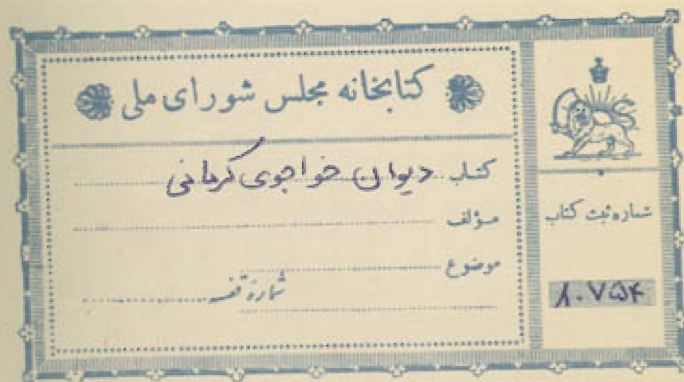 کتابخانه مجلس شورای ملی
کتاب دیوان خواجوی کرمانی
مؤلف
موضوع
شماره قفسه
شماره ثبت کتاب
۸۰۷۵۴